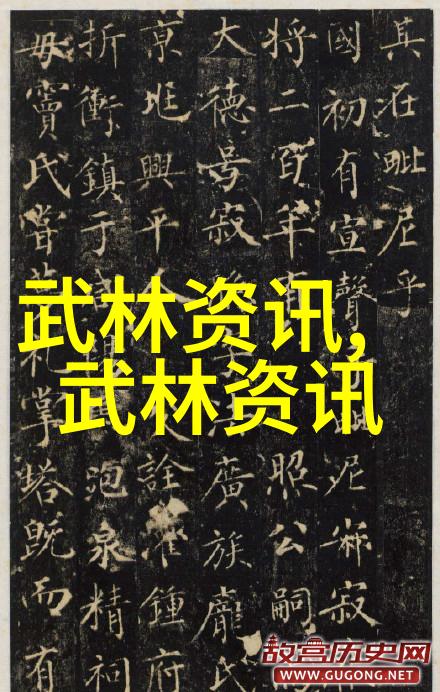 其在毗尼乎
國初有宣聲尼寂
將二百年有照公嗣
大德号寂廣族龐氏
京兆興平人詮鍾府
折衝鎮于泡泉精祠
毋竇氏嘗札掌塔既而有
武林资讯,
武林资讯
故宫历史网
WWW.GUGONG.NET